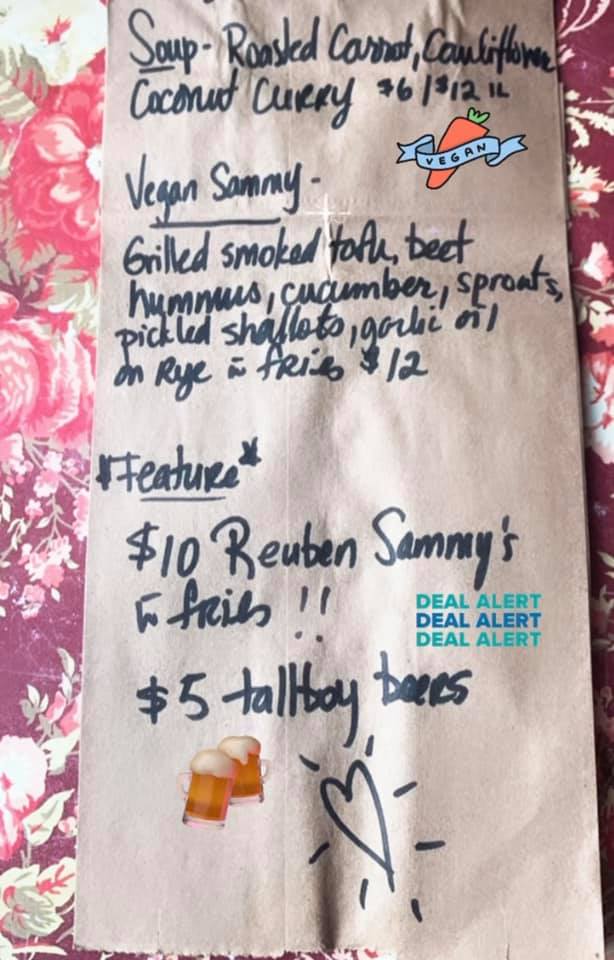 Soup - Roasted Carrot, Cauliflower
Coconut Curry $6/$12 1L
VEGAN
Vegan Sammy -
Grilled smoked tofu, beet
hummus, cucumber, sprouts,
pickled shallots, garlic oil
on Rye w̄ fries $12
*Feature*
$10 Reuben Sammy's
w̄ fries !!
DEAL ALERT
DEAL ALERT
DEAL ALERT
$5 tallboy beers